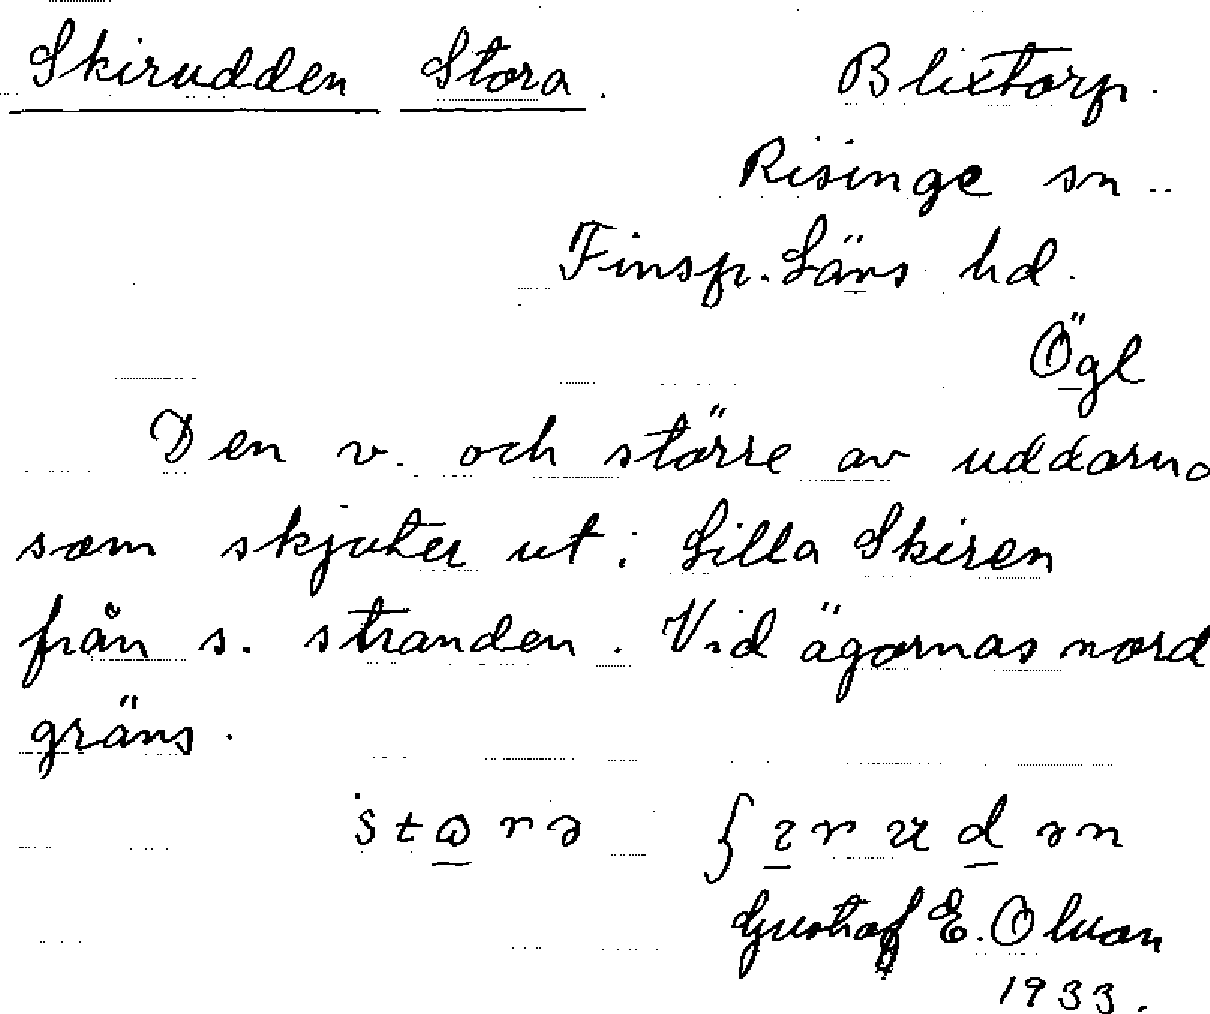 Skirudden Stora. Blixtorp.
Risinge sn.
Finsp. Läns hd.
Ögl
Den v. och större av uddarna
som skjuter ut i Lilla Skiren
från s. stranden. Vid ägornas nord
gräns.
Gustaf E. Olson
1933.